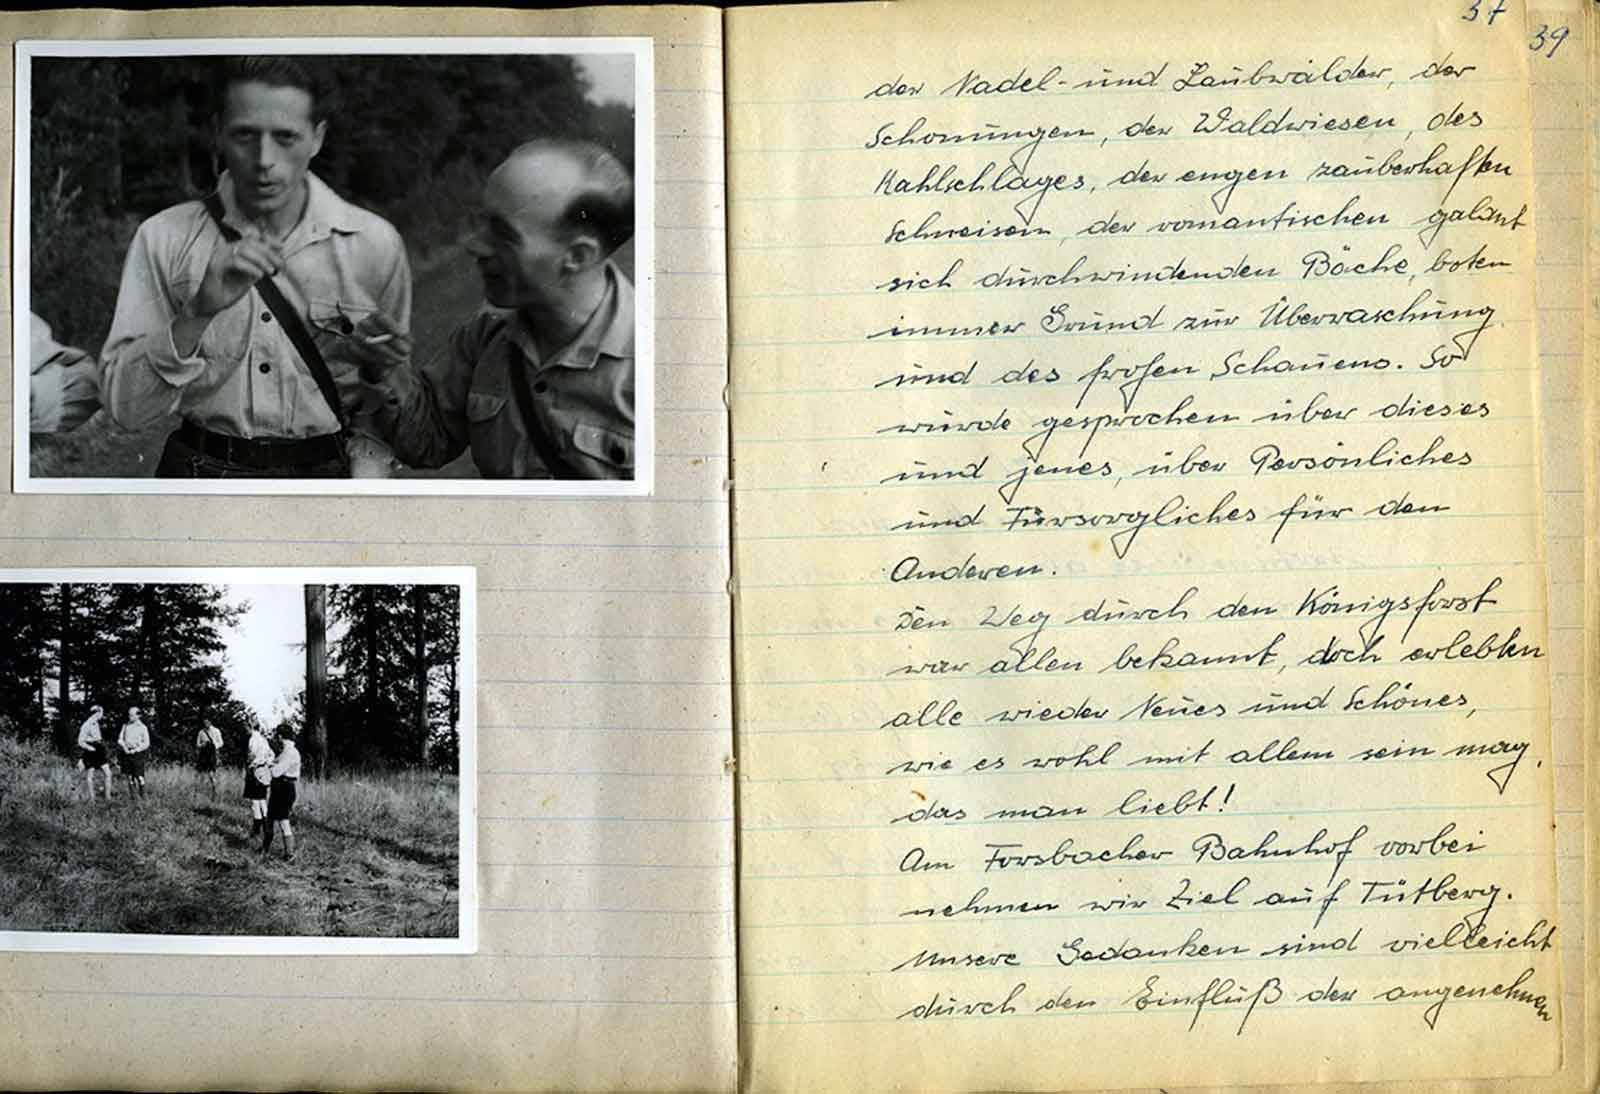 37
39
der Nadel- und Laubwälder, der
Schonungen, der Waldwiesen, des
Kahlschlages, der engen zauberhaften
Schneisen, der romantischen galant
sich durchwindenden Bäche, boten
immer Grund zur Überraschung
und des frohen Schauens. So
wurde gesprochen über dieses
und jenes, über Persönliches
und Fürsorgliches für den
Anderen.
Den Weg durch den Königsforst
war allen bekannt, doch erlebten
alle wieder Neues und Schönes,
wie es wohl mit allem sein mag,
das man liebt!
Am Forsbacher Bahnhof vorbei
nehmen wir Ziel auf Tütberg.
Unsere Gedanken sind vielleicht
durch den Einfluß der angenehmen